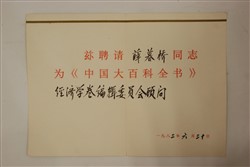 兹聘请 薛暮桥 同志
为《中国大百科全书》
经济学卷编辑委员会顾问
一九八二年六月三十日